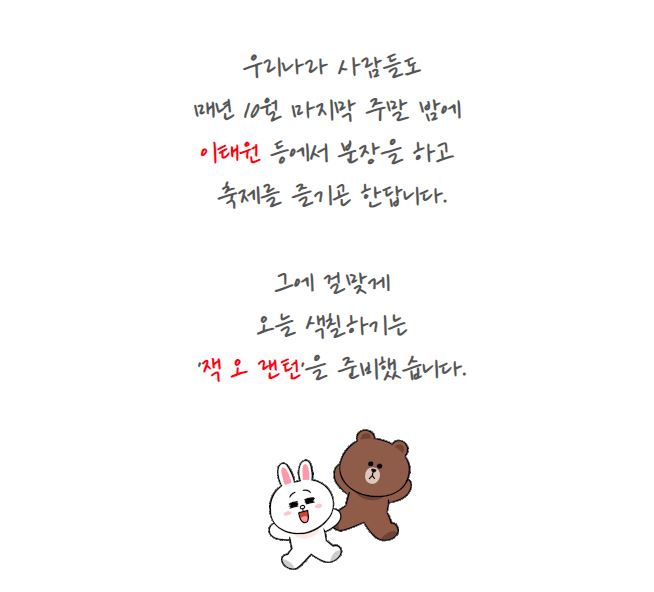 우리나라 사람들도
매년 10월 마지막 주말 밤에
이태원 등에서 분장을 하고
축제를 즐기곤 한답니다.
그에 걸맞게
오늘 색칠하기는
'잭 오 랜턴'을 준비했습니다.